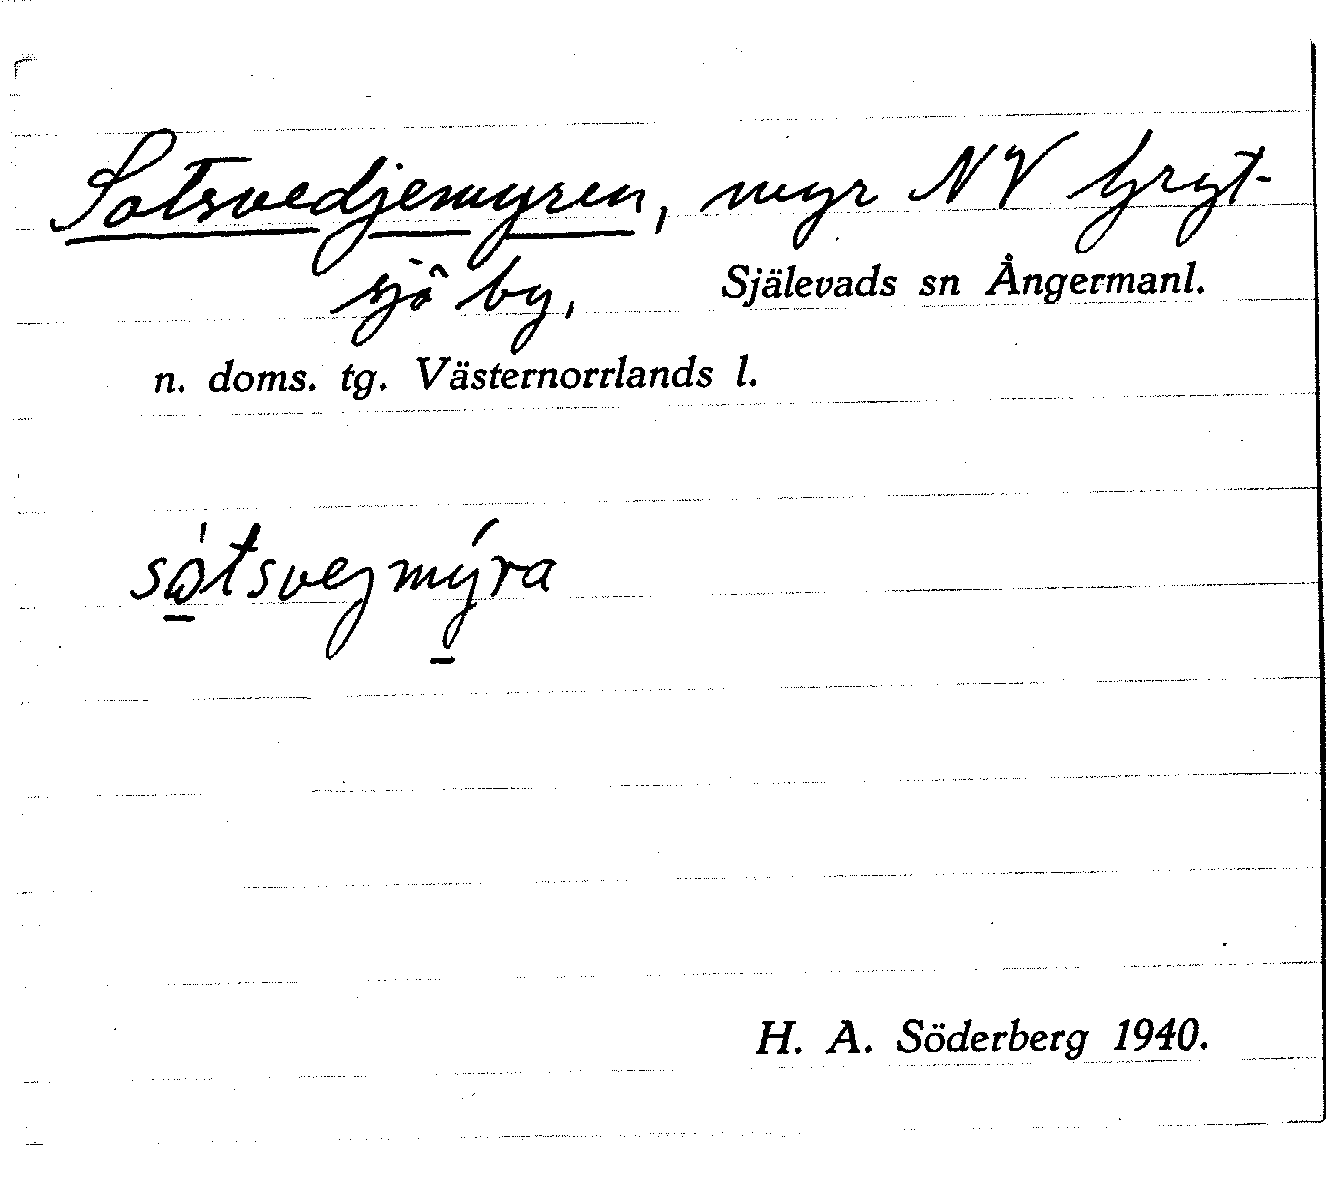 Sotsvedjemyren, myr NV Gryt-
sjö by, Själevads sn Ångermanl.
n. doms. tg. Västernorrlands l.
sótsvejmýra
H. A. Söderberg 1940.